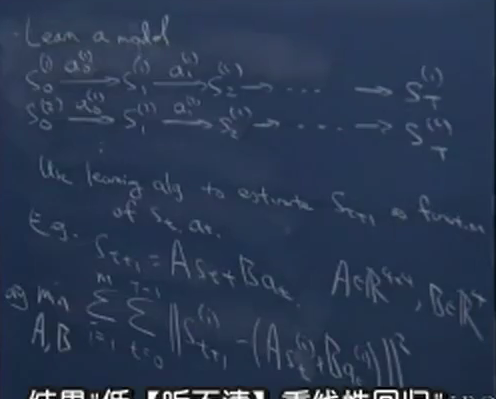 Learn a model
S_0^{(1)} \xrightarrow{a_0^{(1)}} S_1^{(1)} \xrightarrow{a_1^{(1)}} S_2^{(1)} → ... → S_T^{(1)}
S_0^{(2)} \xrightarrow{a_0^{(2)}} S_1^{(2)} \xrightarrow{a_1^{(2)}} S_2^{(2)} → ... → S_T^{(2)}
Use learning alg to estimate S_{t+1} as function
of s_t, a_t.
E.g. S_{t+1} = A s_t + B a_t. A∈ℝ^{4×4}, B∈ℝ^4
arg min_{A,B} \sum_{i=1}^{m} \sum_{t=0}^{T-1} ||S_{t+1}^{(i)} - (A s_t^{(i)} + B a_t^{(i)})||^2
结果"低【听不清】重线性回归"